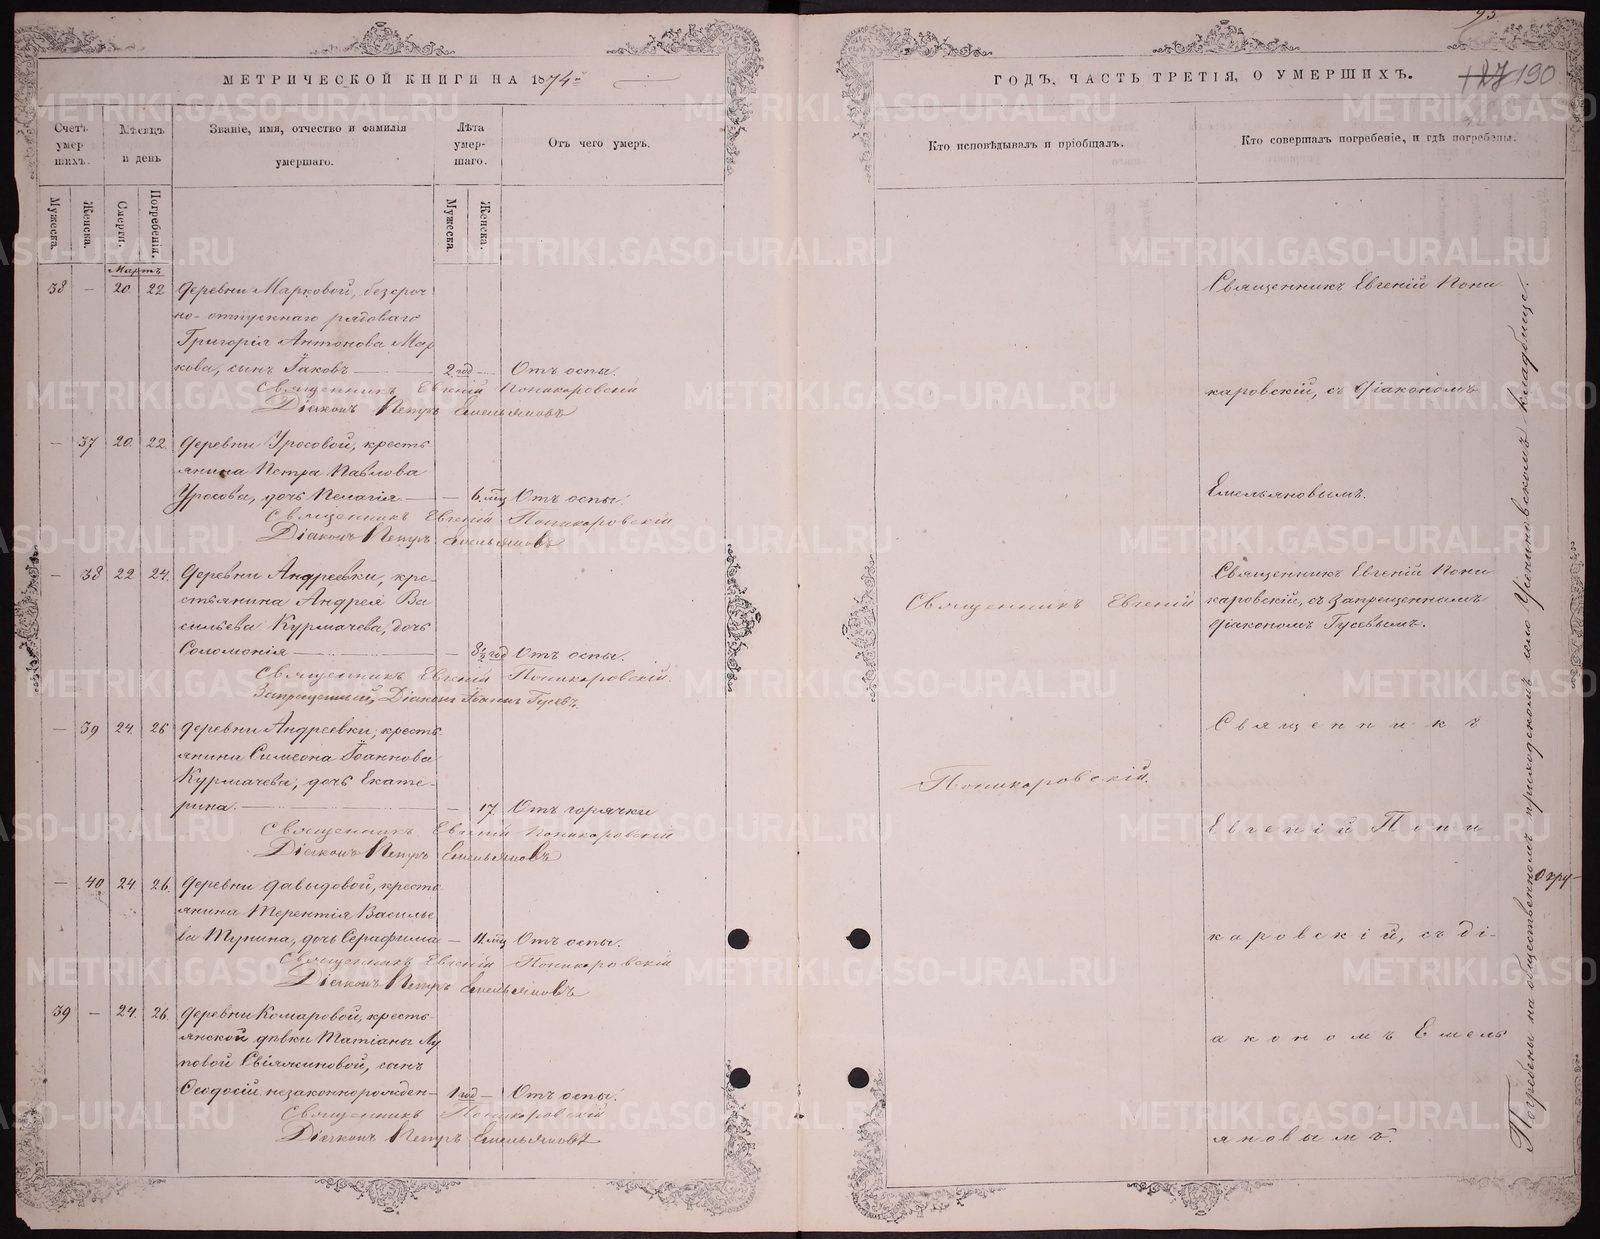 МЕТРИЧЕСКОЙ КНИГИ НА 1874й
Счетъ умер шихъ.
Мѣсяцъ и день
Званіе, имя, отчество и фамилія умершаго.
Лѣта умер- шаго.
Отъ чего умеръ.
Мужеска.
Женска.
Смерти.
Погребенія.
Мужеска.
Женска.
Мартъ
38 — 20 22 Деревни Марковой, безсроч
но-отпускнаго рядоваго
Григорія Антонова Мар
кова, сынъ Іаковъ — 2 год — Отъ оспы.
Священникъ Евгеній Поникаровскій
Діаконъ Петръ Емельяновъ
— 37 20. 22. Деревни Уросовой, кресть
янина Петра Павлова
Уросова, дочь Пелагія — — 6. мѣц Отъ оспы.
Священникъ Евгеній Поникаровскій
Діаконъ Петръ Емельяновъ
— 38 22 24. Деревни Андреевки, кре-
стьянина Андрея Ва
сильева Курмачева, дочь
Соломонія — — 3½ год Отъ оспы.
Священникъ Евгеній Поникаровскій.
Запрещенный, Діаконъ Іоаннъ Гусевъ.
— 39 24. 26 Деревни Андреевки, кресть
янина Симеона Іоаннова
Курмачева, дочь Екате-
рина. — — 17 Отъ горячки
Священникъ Евгеній Поникаровскій
Діаконъ Петръ Емельяновъ
— 40. 24. 26. Деревни Давыдовой, кресть
янина Терентія Василье
ва Тунина, дочь Серафима — 11. мѣц Отъ оспы.
Священникъ Евгеній Поникаровскій
Діаконъ Петръ Емельяновъ
39 — 24. 26 Деревни Комаровой, кресть
янской дѣвки Татіаны Лу
повой Свіяжиновой, сынъ
Ѳеодосій незаконнорожден- 1 год — Отъ оспы.
Священникъ Поникаровскій
Діаконъ Петръ Емельяновъ
95
ГОДЪ, ЧАСТЬ ТРЕТІЯ, О УМЕРШИХЪ.
127 190
Кто исповѣдывалъ и пріобщалъ.
Кто совершалъ погребеніе, и гдѣ погребены.
Священникъ Евгеній
Поникаровскій.
Священникъ Евгеній Пони
каровскій, съ Діакономъ
Емельяновымъ.
Священникъ Евгеній Пони
каровскій, съ Запрещеннымъ
Діакономъ Гусевымъ.
Священникъ
Евгеній Пони
каровскій, съ Ді-
акономъ Емель
яновымъ.
Погребены на общественномъ приходскомъ кладбище.
METRIKI.GASO-URAL.RU